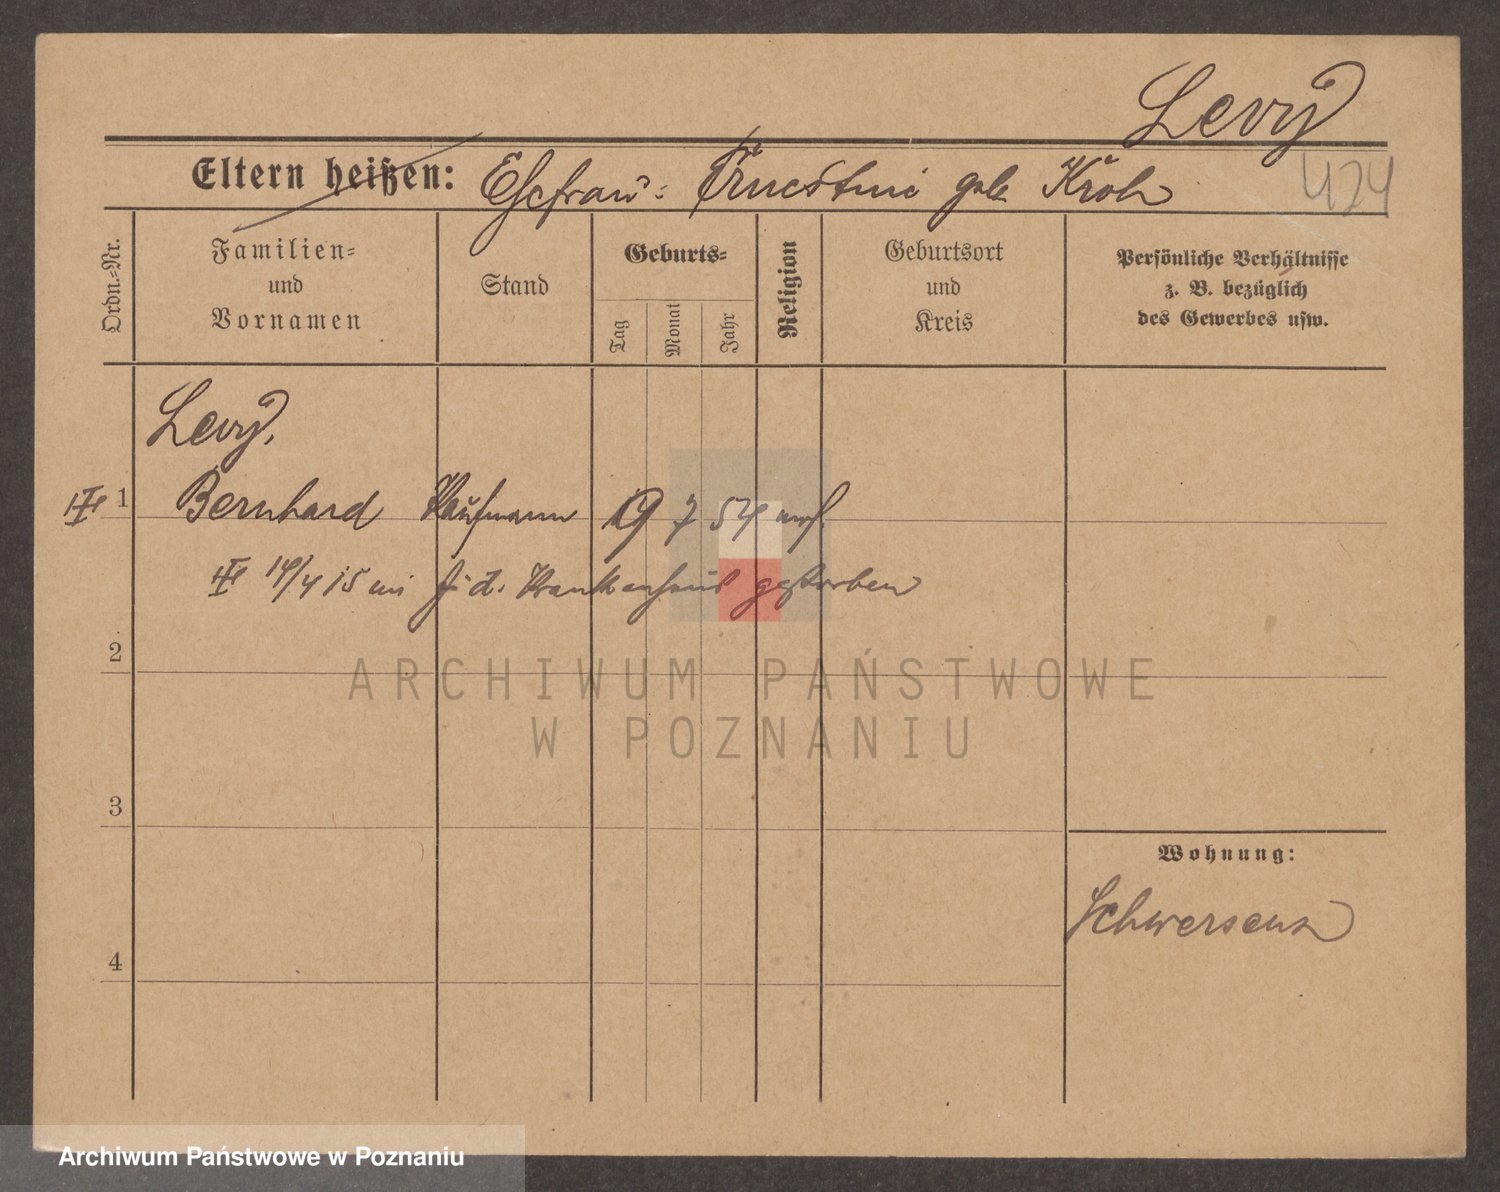 Levy
Eltern heißen: Ehefrau: Ernestine geb. Kroh
424
Ordn.-Nr.
Familien-
und
Vornamen
Stand
Geburts-
Tag
Monat
Jahr
Religion
Geburtsort
und
Kreis
Persönliche Verhältnisse
z. B. bezüglich
des Gewerbes usw.
Levy,
1 Bernhard Kaufmann 19 7 54 mos.
14/4 15 im j. d. Krankenhaus gestorben
2
3
4
Wohnung:
Schwersenz
ARCHIWUM PAŃSTWOWE
W POZNANIU
Archiwum Państwowe w Poznaniu